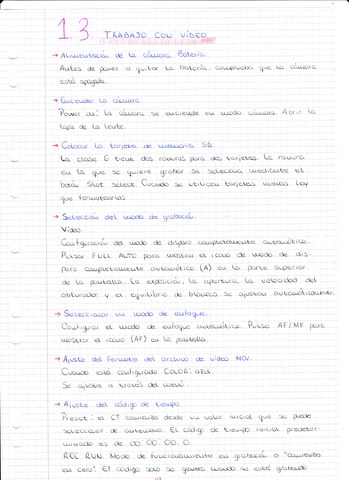 1.3 TRABAJO CON VÍDEO
→ Alimentación de la cámara. Batería.
Antes de poner o quitar la batería, comprobar que la cámara
está apagada.
→ Encender la cámara.
Power on: la cámara se enciende en modo cámara. Abrir la
tapa de la lente.
→ Colocar la tarjeta de memoria SD.
La clase 6 tiene dos ranuras para dos tarjetas. La ranura
en la que se quiere grabar se selecciona mediante el
botón Slot select. Cuando se utilicen tarjetas nuevas hay
que formatearlas
→ Selección del modo de grabación.
Vídeo.
Configuración del modo de disparo completamente automático.
Pulsar FULL AUTO para mostrar el icono de modo de dis-
paro completamente automático (A) en la parte superior
de la pantalla. La exposición, la apertura, la velocidad del
obturador y el equilibrio de blancos se ajustan automáticamente.
→ Seleccionar un modo de enfoque.
Configurar el modo de enfoque automático. Pulse AF/MF para
mostrar el icono (AF) en la pantalla.
→ Ajuste del formato del archivo de vídeo MOV.
Cuando está configurado COLOR: azul.
Se ajusta a través del menú.
→ Ajuste del código de tiempo.
Preset: el CT comienza desde un valor inicial que se puede
seleccionar de antemano. El código de tiempo inicial predeter-
minado es de 00:00:00.0.
REC RUN. Modo de funcionamiento en grabación o "comienzo
en cero". El código solo se genera cuando se está grabando